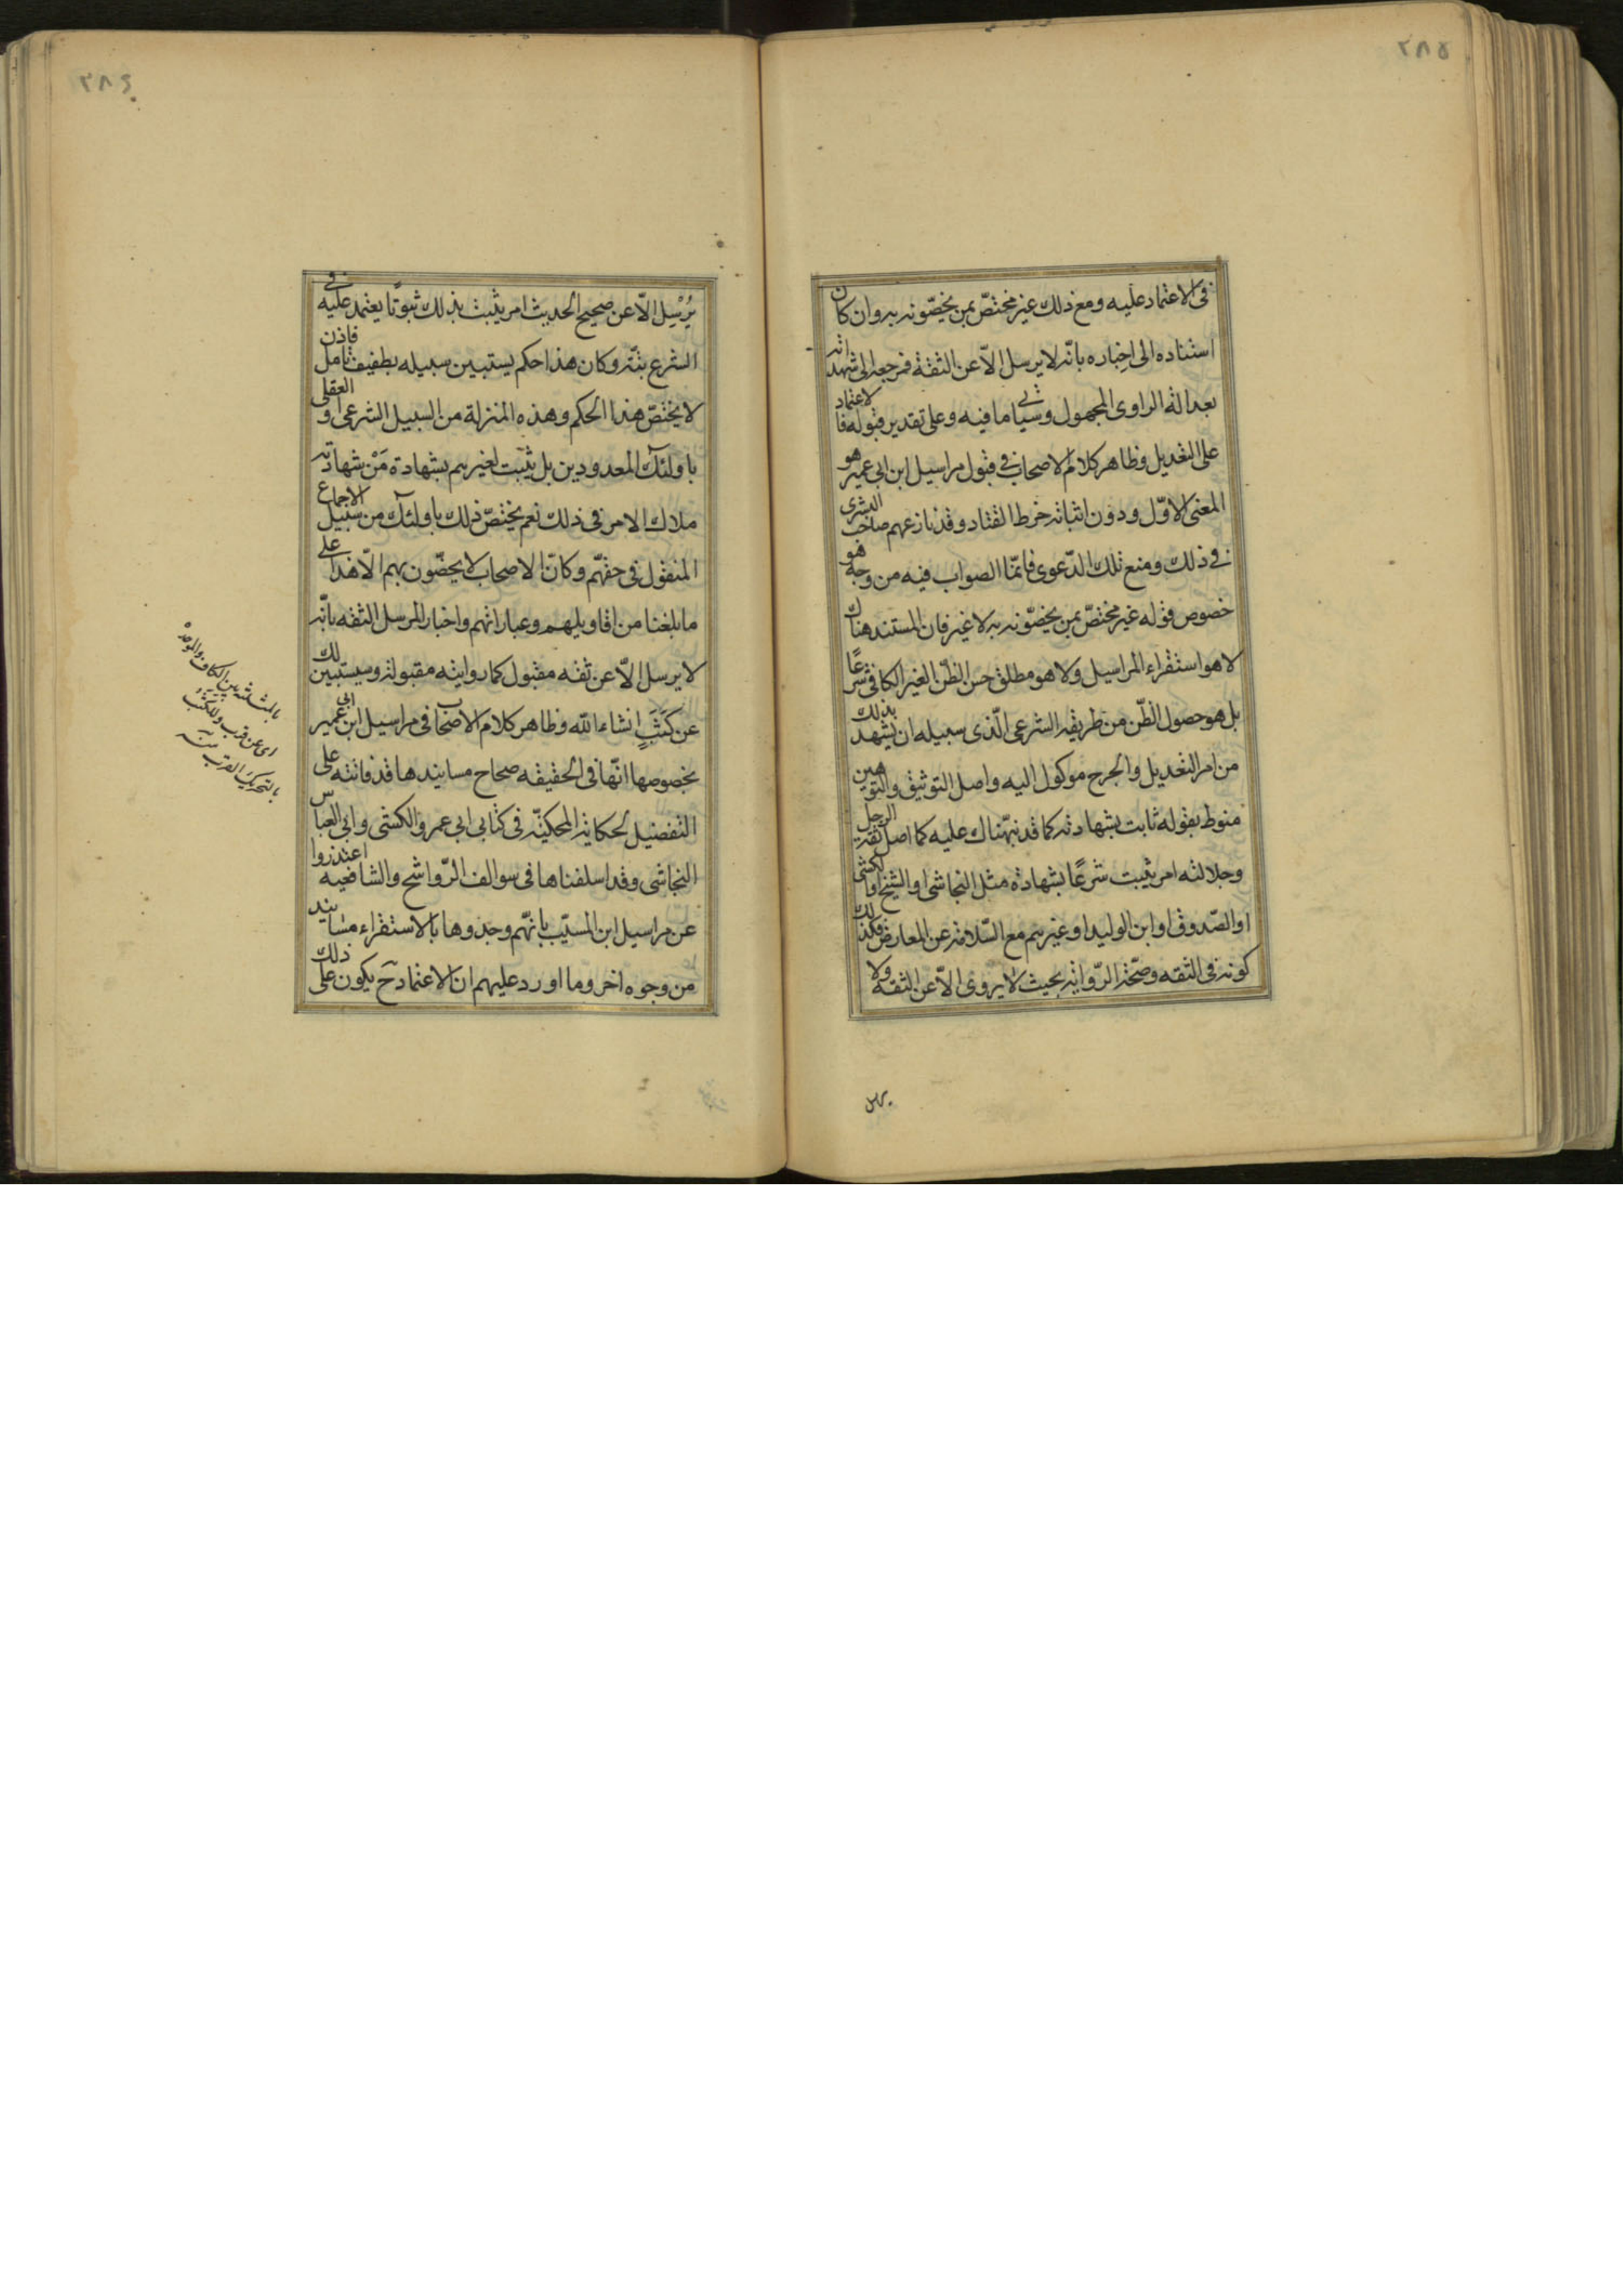 ٢٨٥
فى الاعتماد عليه ومع ذلك غير مختصّ بمن يخصّونه به وان كان
استناده الى اخباره بانّه لا يرسل الاّ عن الثقة فمرجعه الى شهادته
بعدالة الراوى المجهول وسيأتى ما فيه وعلى تقدير قبوله فالاعتماد
على التعديل وظاهر كلام الاصحاب فى قبول مراسيل ابن ابى عمير هو
المعنى الاوّل ودون اثباته خرط القتاد وقد نازعهم صاحب البشرى
فى ذلك ومنع تلك الدّعوى فانّما الصواب فيه من وجه هو
خصوص قوله غير مختصّ بمن يخصّونه به لا غير فان المستند هناك
لا هو استقراء المراسيل ولا هو مطلق حسن الظّن الغير الكافى شرعًا
بل هو حصول الظّن من طريقه الشرعى الّذى سبيله ان يشهد بذلك
من امر التعديل والجرح موكول اليه واصل التوثيق والتوهين
منوط بقوله ثابت بشهادته كما قد نبّهناك عليه كما اصل ثقة الرجل
وجلالته امر يثبت شرعًا بشهادة مثل النجاشى او الشيخ او الكشى
او الصّدوق او ابن الوليد او غيرهم مع السّلامة عن المعارض فكذلك
كونه فى الثقه وصحّة الرّواية بحيث لا يروى الاّ عن الثقه ولا
يرسل
٢٨٦
يُرْسِل الاّ عن صحيح الحديث امر يثبت بذلك ثبوتًا يعتمد عليه فى
الشرع بتّه وكان هذا حكم يستبين سبيله بطفيف تأمل فاذن
لا يختصّ هذا الحكم وهذه المنزلة من السبيل الشرعى او العقلى
باولئك المعدودين بل يثبت لغيرهم بشهادة مَنْ شهادته
ملاك الامر فى ذلك نعم يختصّ ذلك باولئك من سبيل الاجماع
المنقول فى حقّهم وكانّ الاصحاب لا يخصّون بهم الاّ هذا على
ما بلغنا من اقاويلهم وعباراتهم واخبار المرسل الثقه بانّه
لا يرسل الاّ عن ثقه مقبول كما روايته مقبولة وسيستبين لك
عن كَثَبٍ انشاء الله وظاهر كلام الاصحاب فى مراسيل ابن ابى عمير
بخصوصها انّها فى الحقيقه صحاح مسانيدها قد فاتته على
التفصيل لحكاية المحكيّة فى كتابى ابى عمرو الكشى وابى العباس
النجاشى وقد اسلفناها فى سوالف الرّواشح والشافعيه اعتذروا
عن مراسيل ابن المسيّب بانّهم وجدوها بالاستقراء مسانيد
من وجوه اخر وما اورد عليهم ان الاعتماد ح يكون على ذلك
بالمثلثه بين الكاف والموحده
اى عن قرب والكَثَب
بالتحريك القرب منه